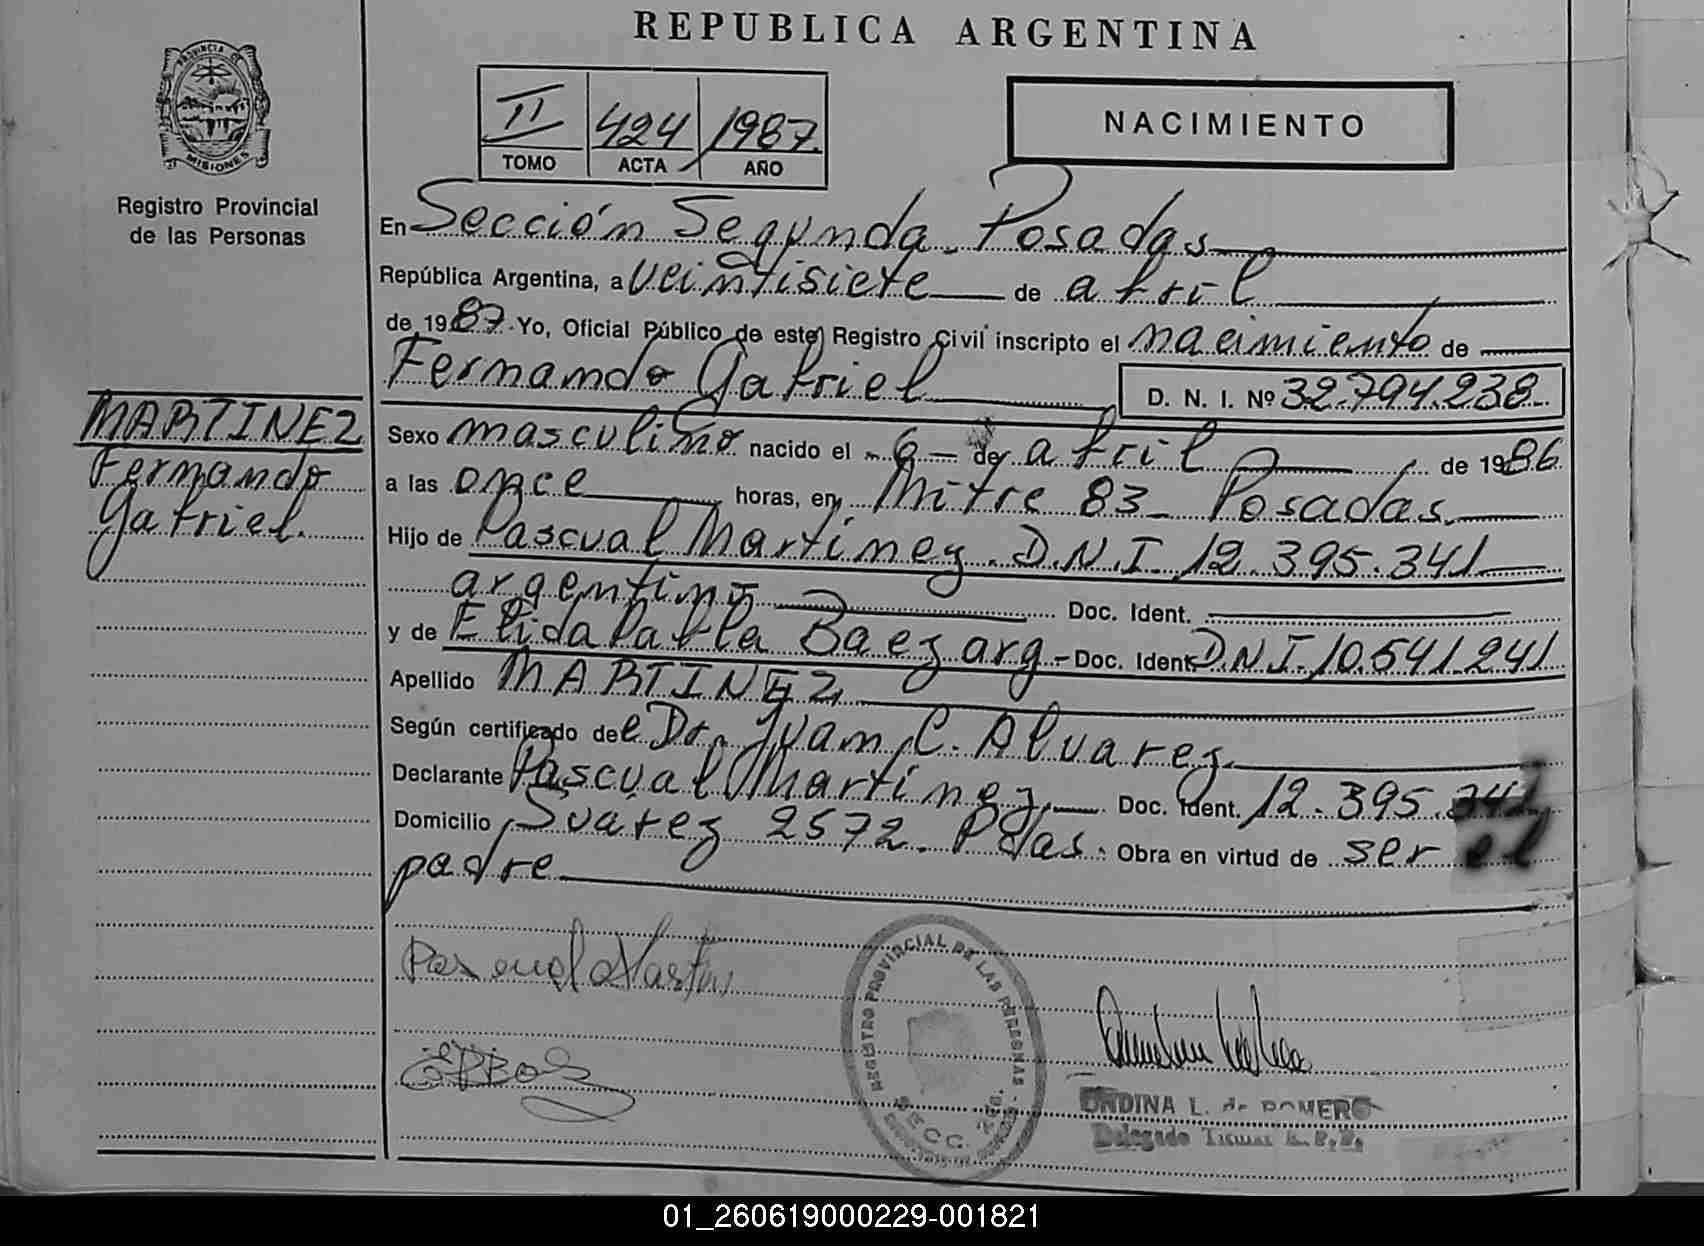 REPUBLICA ARGENTINA
PROVINCIA DE
MISIONES
Registro Provincial
de las Personas
II 424 1987
TOMO ACTA AÑO
NACIMIENTO
En Sección Segunda - Posadas
República Argentina, a veintisiete de abril
de 1987. Yo, Oficial Público de este Registro Civil inscripto el nacimiento de
Fernando Gabriel
D. N. I. Nº 32.794.238
MARTINEZ
Fernando
Gabriel
Sexo masculino nacido el 6 de abril de 1986
a las once horas, en Mitre 83 - Posadas
Hijo de Pascual Martínez. D.N.I 12.395.341
argentino Doc. Ident.
y de Elida Pabla Baez arg - Doc. Ident. D.N.I. 10.541.241
Apellido MARTINEZ
Según certificado del Dr. Juan C. Alvarez
Declarante Pascual Martínez Doc. Ident. 12.395.341
Domicilio Suarez 2572 - Pdas. Obra en virtud de ser el
padre
REGISTRO PROVINCIAL DE LAS PERSONAS
SECC. 2da.
ONDINA L. de ROMERO
Delegado Titular R.P.P.
01_260619000229-001821